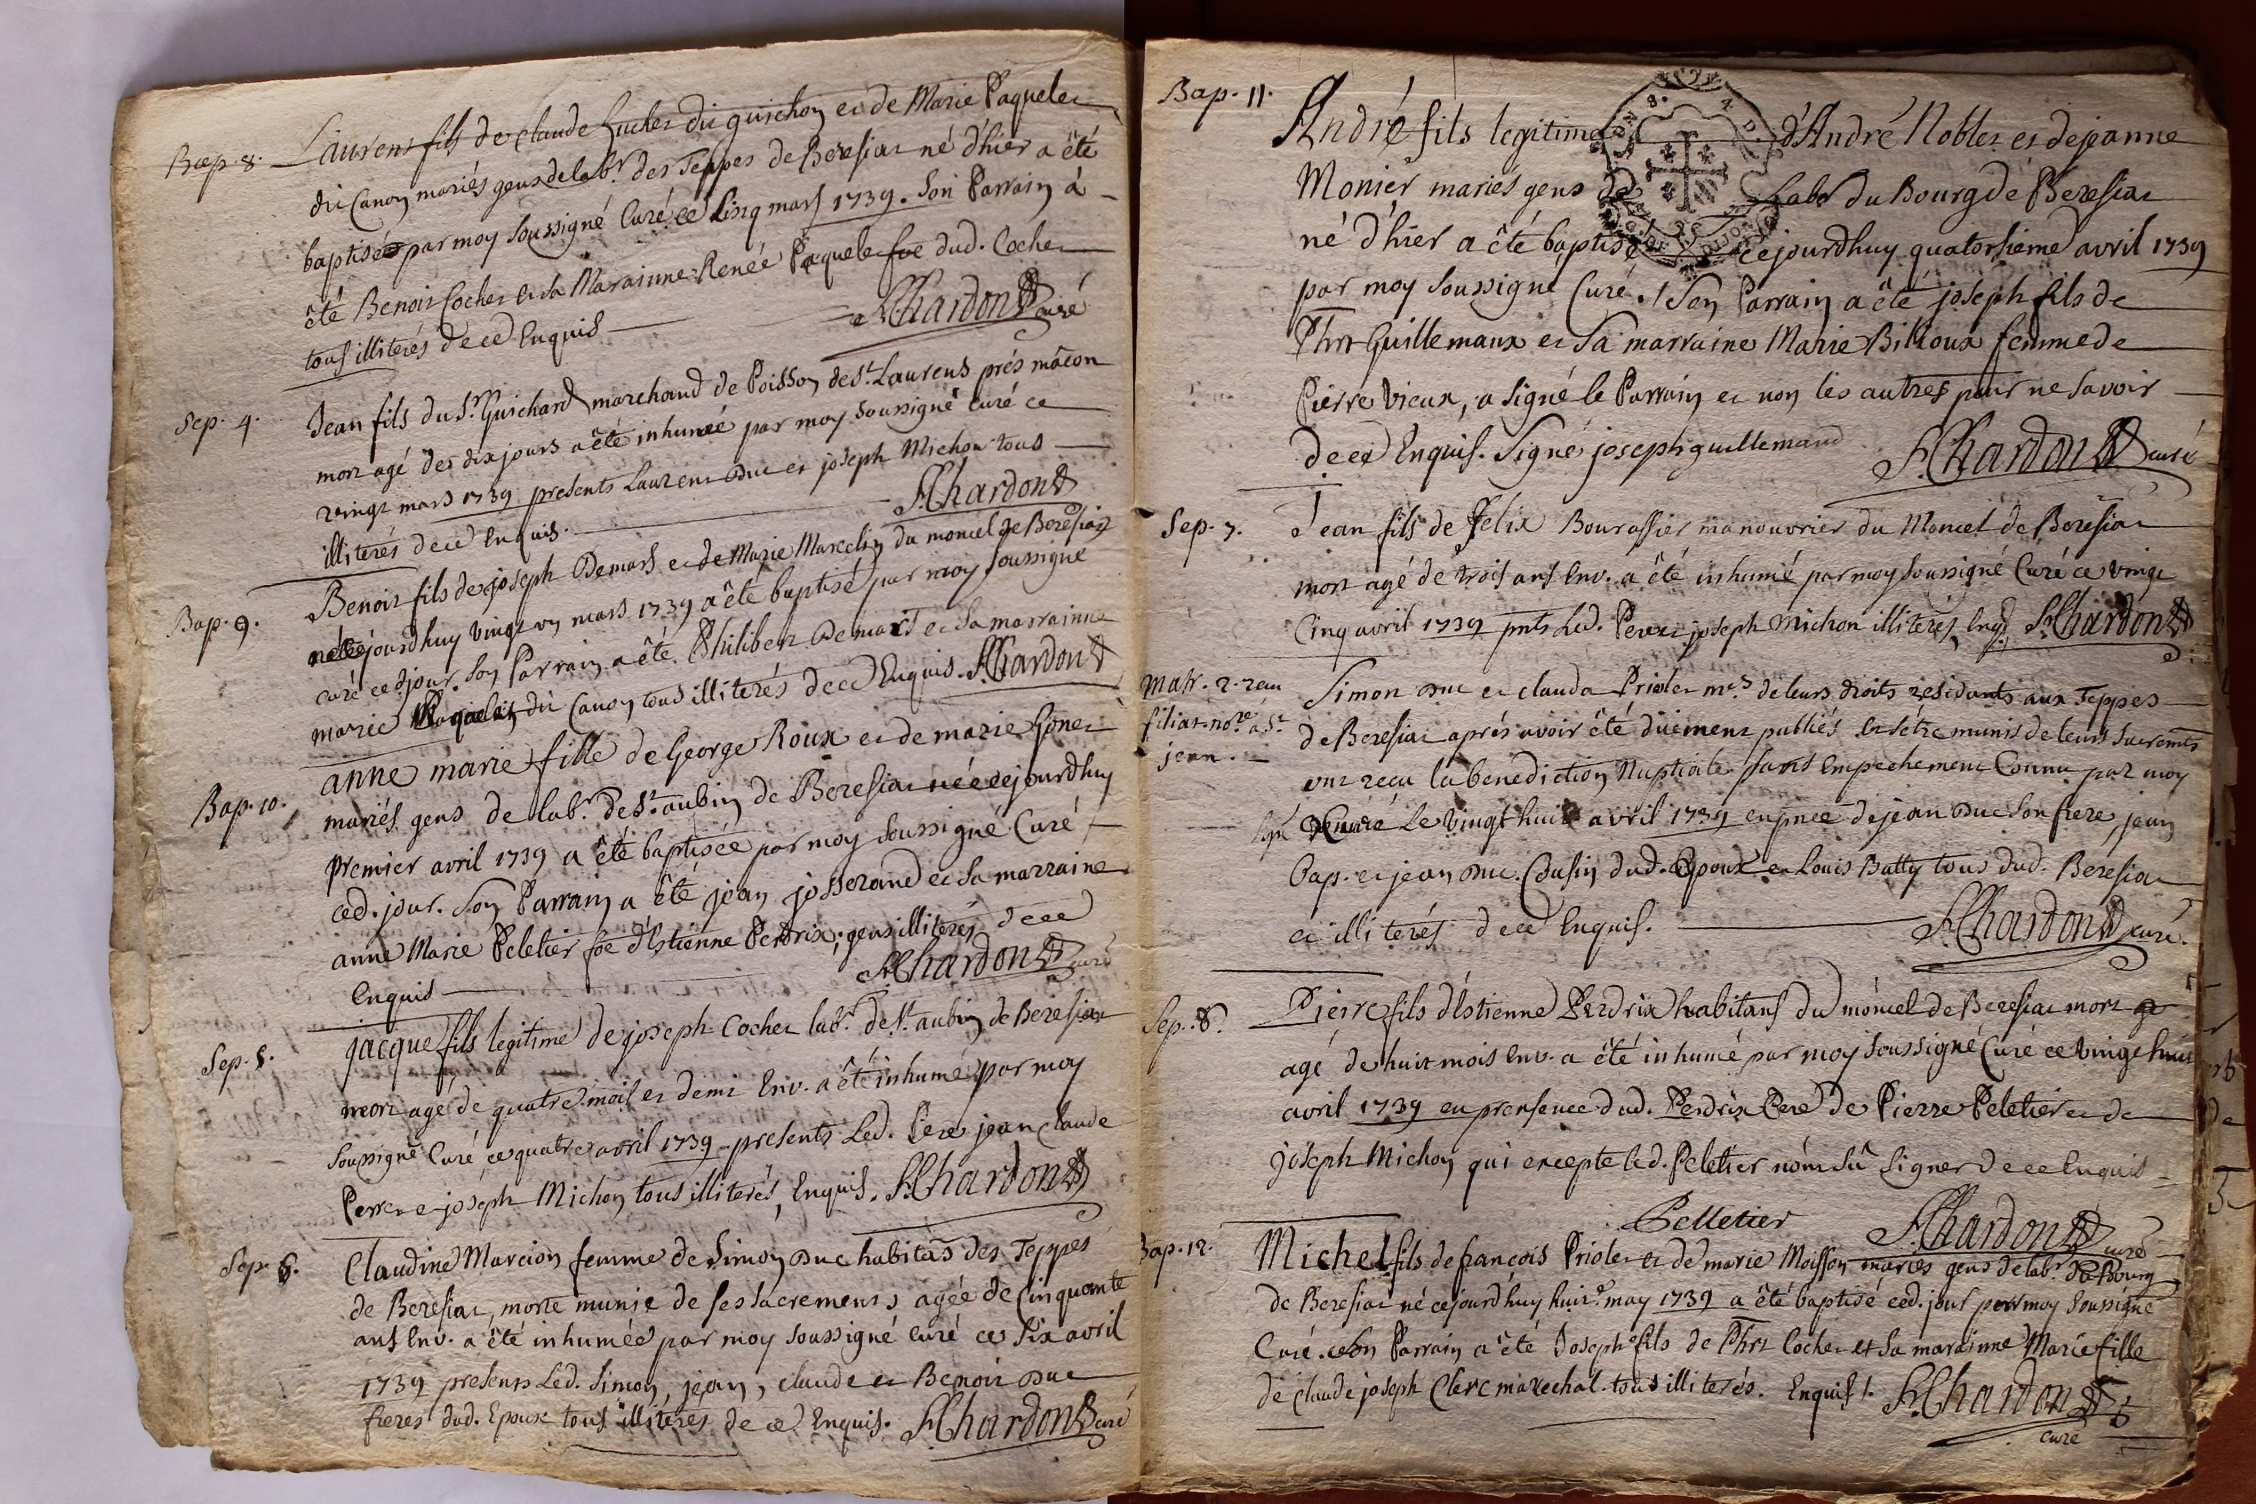 Bap. 8.
Laurent fils de Claude Cochet dit guichon et de Marie Paquelet
dit Canon mariés gens de labr. des Teppes de Beresiat né d'hier a êté
baptisé par moy soussigné Curé ce Cinq mars 1739. Son Parrain à
êté Benoit Cochet et sa Marainne Renée Paquelet fe dud. Cochet
tous illiterés de ce Enquis
Chardon curé
Sep. 4.
Jean fils du Sr. Guichard marchand de Poisson de St. Laurens prés mâcon
mort agé de dix jours a êté inhumé par moy soussigné Curé ce
vingt mars 1739 presents Laurent Duc et joseph Michon tous
illiterés de ce Enquis.
Chardon
Bap. 9.
Benoit fils de joseph Demars et de Marie Marcelin du moncel de Beresiat
né cejourdhuy vingt un mars 1739 a êté baptisé par moy soussigné
curé ced. jour. Son Parrain a êté Philibert Demars et sa marrainne
marie Paquelet dit Canon tous illiterés de ce Enquis. Chardon
Bap. 10.
anne marie fille de George Roux et de marie Gonet
mariés gens de labr. de St. aubin de Beresiat née cejourdhuy
premier avril 1739 a êté baptisée par moy soussigné Curé
ced. jour. Son Parrain a êté jean josserand et sa marraine
anne Marie Peletier fe d'Estienne Perdrix, gens illiterés de ce
Enquis
Chardon curé
Sep. 5.
jacque fils legitime de joseph Cochet labr. de St. aubin de Beresiat
mort agé de quatre mois et demi Env. a êté inhumé par moy
soussigné Curé ce quatre avril 1739 presents Led. Pere jean Claude
Perret et joseph Michon tous illiterés, Enquis. Chardon
Sep. 6.
Claudine Marcion femme de Simon Duc habitãs des Teppes
de Beresiat, morte munie de ses sacremens, agée de Cinquante
ans Env. a êté inhumée par moy soussigné curé ce Six avril
1739 presents Led. Simon, jean, claude et Benoit Duc
freres dud. Epoux tous illiterés de ce Enquis. Chardon curé
Bap. 11.
André fils legitime d'André Noblet et de jeanne
Monier mariés gens de Labr du Bourg de Beresiat
né d'hier a êté baptisé cejourdhuy quatorsieme avril 1739
par moy soussigné Curé. Son Parrain a êté joseph fils de
Phrt Guillemaux et sa marraine Marie Billoux femme de
Pierre Vieux, a signé le Parrain et non les autres pour ne savoir
de ce Enquis. Signé joseph guillemaud Chardon curé
Sep. 7.
Jean fils de Felix Bourassier manouvrier du Moncel de Beresiat
mort agé de trois ans Env. a êté inhumé par moy soussigné Curé ce vingt
Cinq avril 1739 pnts Led. Pere et joseph Michon illiterés, Enq. Chardon
Mar. 2.
jean.
Simon Duc et clauda Priolet mrs de leurs droits residants aux Teppes
de Beresiat aprés avoir êté duëment publiés et s'être munis de leurs sacremts
ont reçu la benediction Nuptiale sans Empechement Connu par moy
curé Le vingt huit avril 1739 en pnce de jean Duc son frere, jean
Bap. et jean Duc Cousin dud. Epoux et Louis Batty tous dud. Beresiat
et illiterés de ce Enquis.
Chardon curé.
Sep. 8.
Pierre fils d'Estienne Perdrix habitans du moncel de Beresiat mort
agé de huit mois Env. a êté inhumé par moy soussigné Curé ce vingt huit
avril 1739 en presence dud. Perdrix Pere de Pierre Peletier et de
joseph Michon qui excepte led. Peletier n'ont sû signer de ce Enquis
Pelletier Chardon curé
Bap. 12.
Michel fils de françois Priolet et de marie Moisson mariés gens de labr. du Bourg
de Beresiat né cejourd'huy huit may 1739 a êté baptisé ced. jour par moy soussigné
Curé. son Parrain a êté Joseph fils de Phrt Cochet et sa marainne Marie fille
de Claude joseph Clerc marechal tous illiterés. Enquis. Chardon
curé